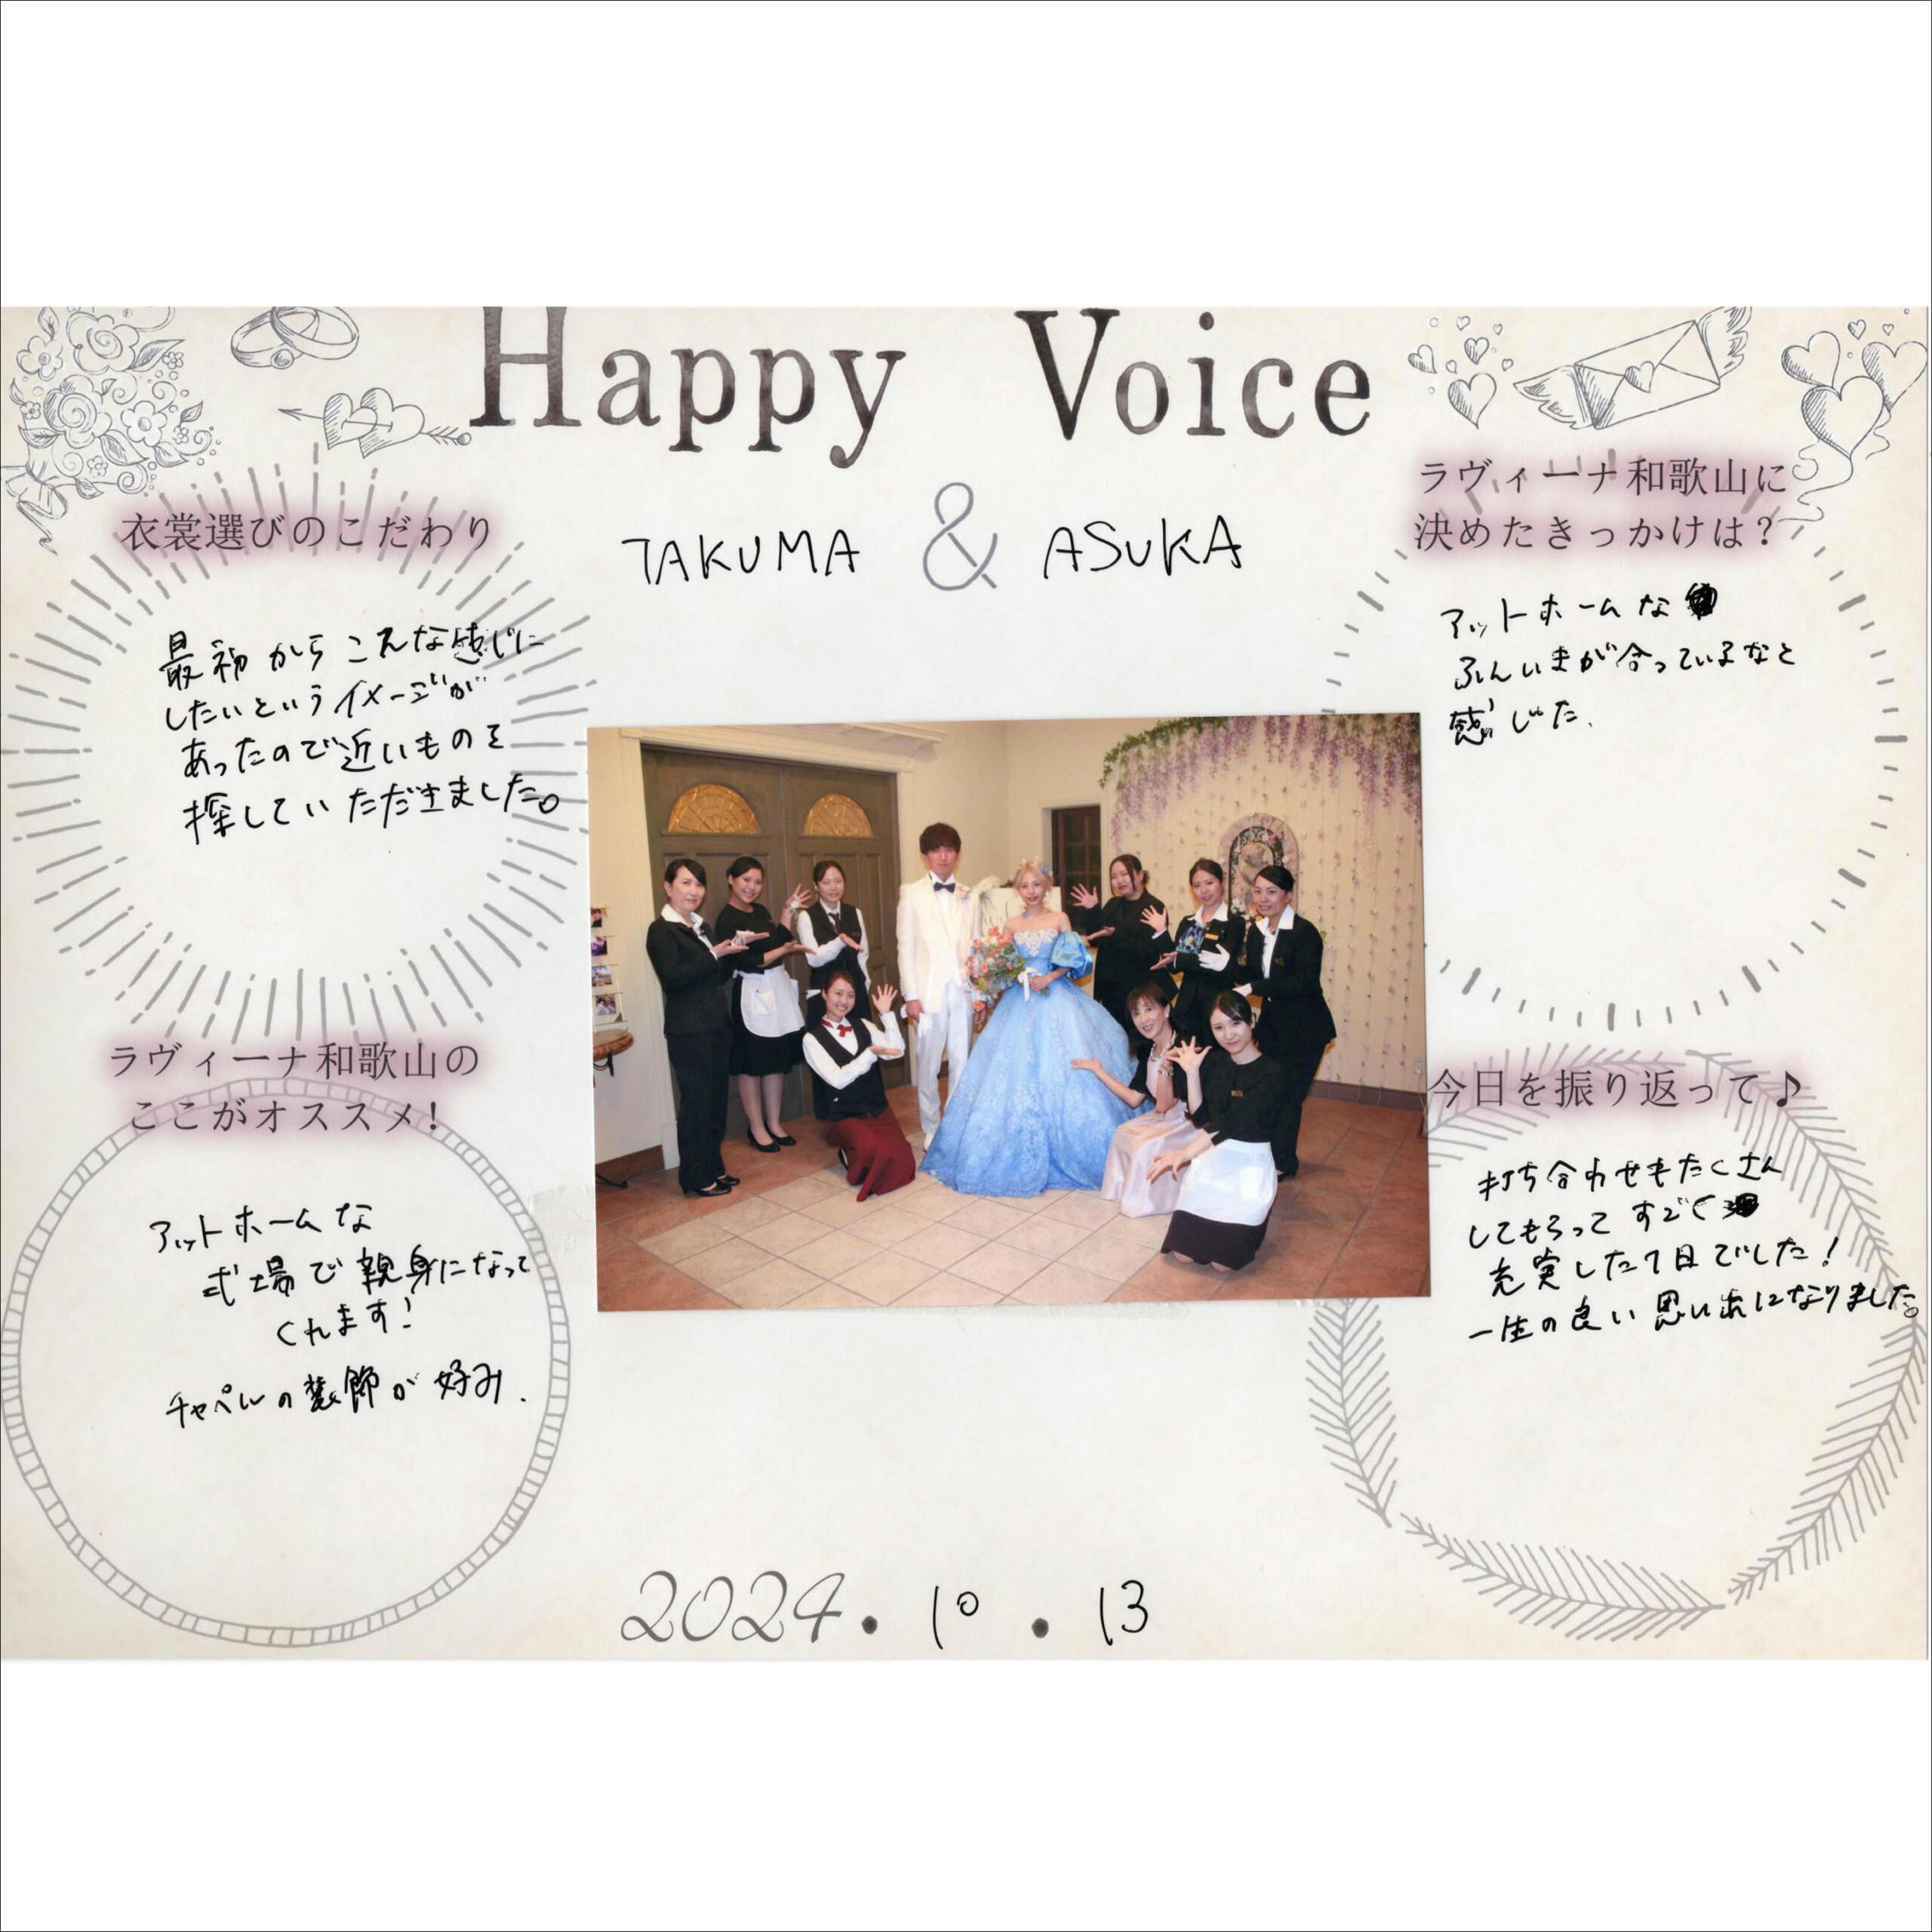 Happy Voice
TAKUMA & ASUKA
衣裳選びのこだわり
最初からこんな感じに
したいというイメージが
あったので近いものを
探していただきました。
ラヴィーナ和歌山に
決めたきっかけは?
アットホームな
ふんいきが合っているなと
感じた.
ラヴィーナ和歌山の
ここがオススメ!
アットホームな
式場で親身になって
くれます!
チャペルの装飾が好み.
今日を振り返って♪
打ち合わせもたくさん
してもらってすごく
充実した1日でした!
一生の良い思い出になりました。
2024. 10 . 13